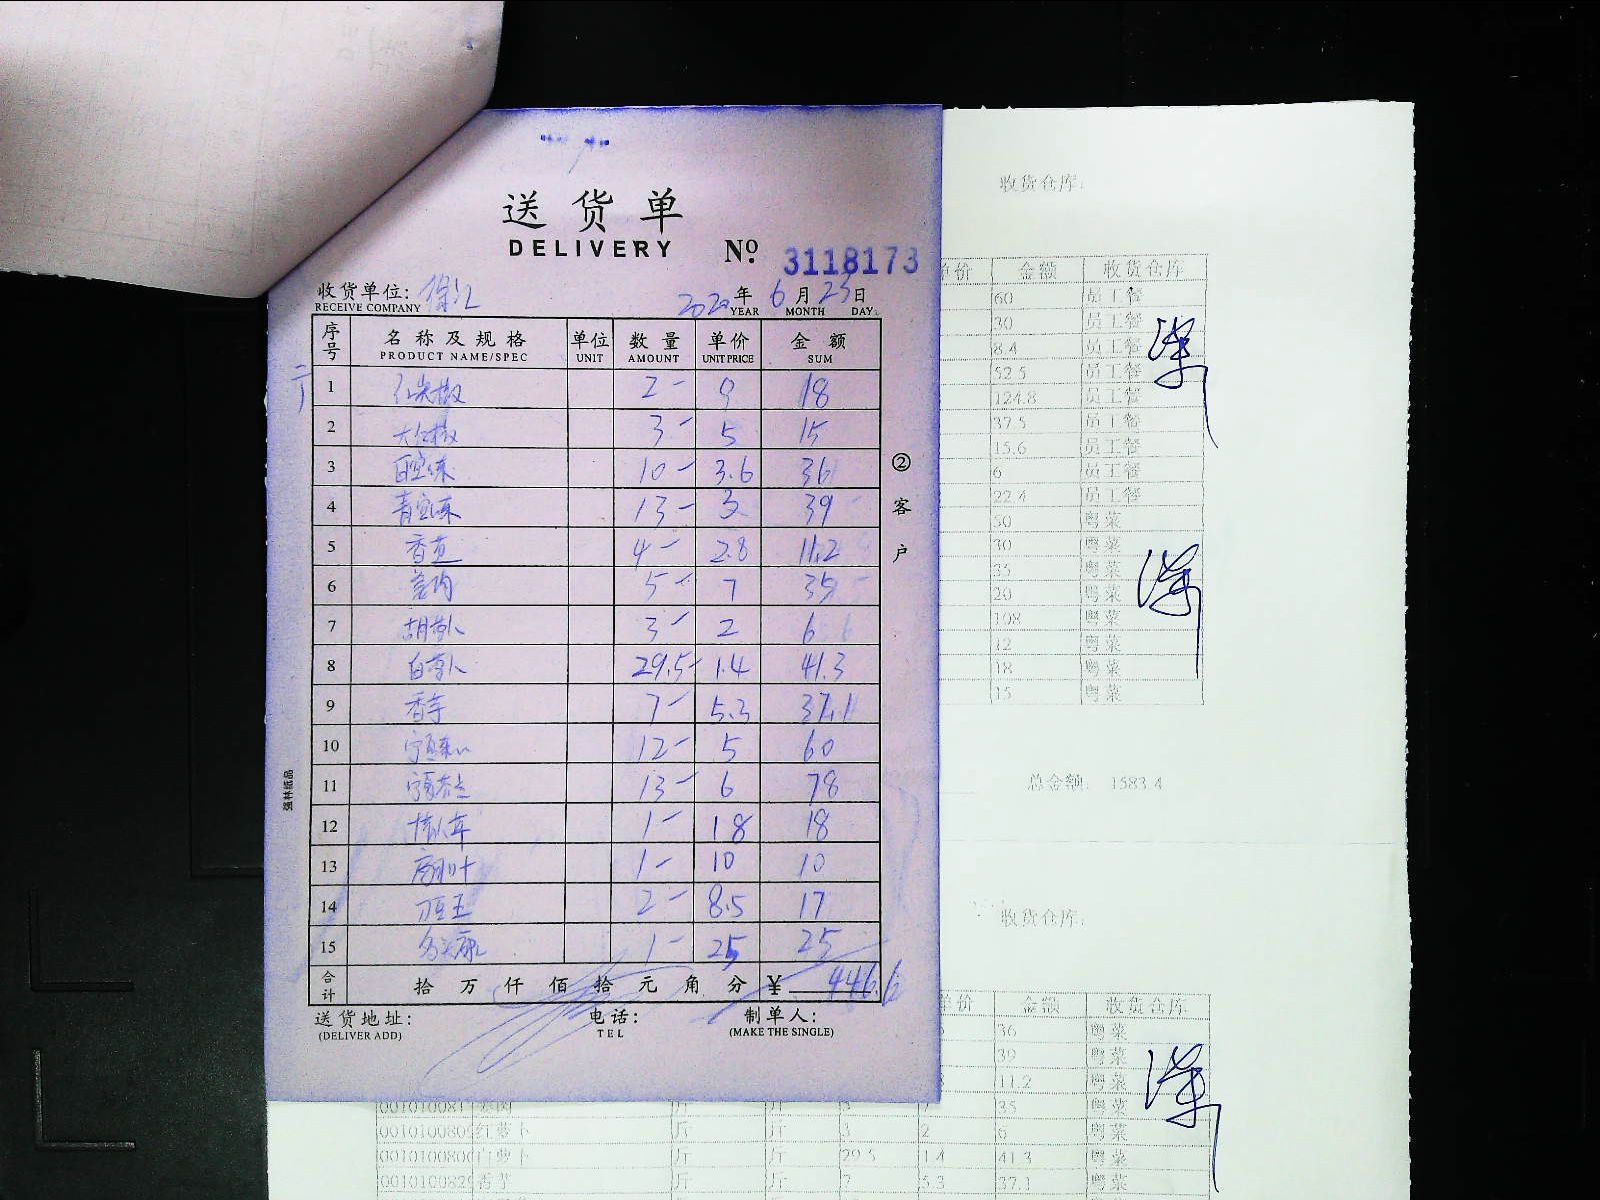 送货单
DELIVERY № 3118173
收货单位: 徐汇 2020年6月23日
RECEIVE COMPANY YEAR MONTH DAY
序号 名称及规格 单位 数量 单价 金额
PRODUCT NAME/SPEC UNIT AMOUNT UNIT PRICE SUM
1 红尖椒 2- 9 18
2 大红椒 3- 5 15
3 10- 3.6 36
4 13- 3 39
5 香芹 4- 2.8 11.2
6 5- 7 35
7 胡萝卜 3- 2 6
8 白萝卜 29.5- 1.4 41.3
9 香芋 7- 5.3 37.1
10 12- 5 60
11 13- 6 78
12 1- 18 18
13 1- 10 10
14 2- 8.5 17
15 1- 25 25
合计 拾万仟佰拾元角分 ¥ 446.6
送货地址: 电话: 制单人:
(DELIVER ADD) TEL (MAKE THE SINGLE)
②客户
强林纸品
收货仓库:
单价 金额 收货仓库
60 员工餐
30 员工餐
8.4 员工餐
52.5 员工餐
124.8 员工餐
37.5 员工餐
15.6 员工餐
6 员工餐
22.4 员工餐
50 粤菜
30 粤菜
35 粤菜
20 粤菜
108 粤菜
12 粤菜
18 粤菜
15 粤菜
总金额: 1583.4
收货仓库:
单价 金额 收货仓库
36 粤菜
39 粤菜
11.2 粤菜
斤 斤 5 7 35 粤菜
红萝卜 斤 斤 3 2 6 粤菜
白萝卜 斤 斤 29.5 1.4 41.3 粤菜
香芋 斤 斤 7 5.3 37.1 粤菜